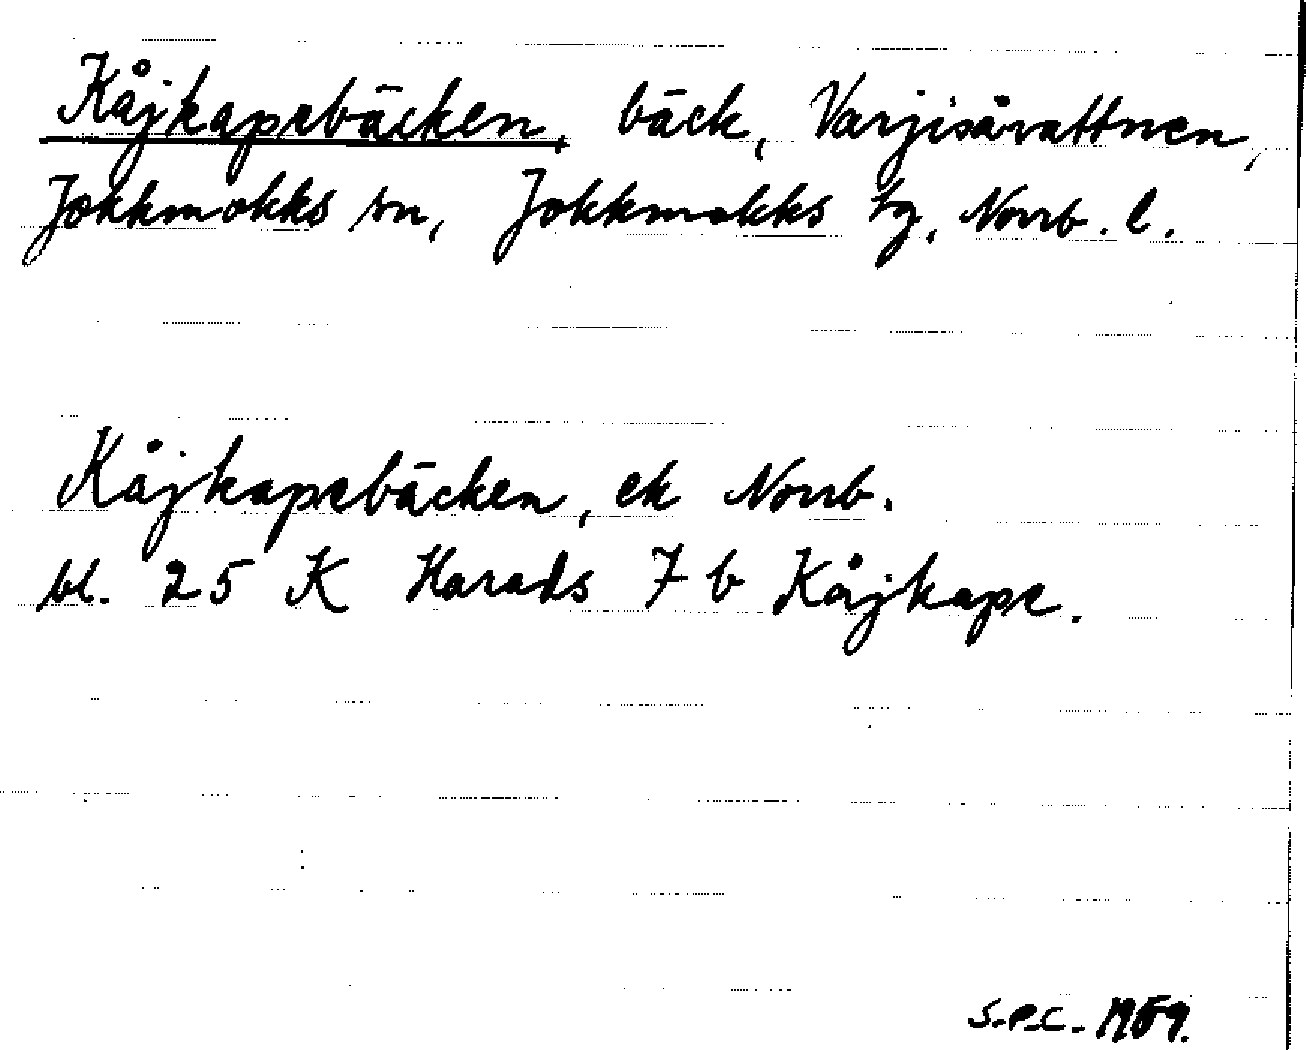 Kåjkapebäcken, bäck, Varjisåvattnen,
Jokkmokks sn, Jokkmokks tg, Norrb. l.
Kåjkapebäcken, ek Norrb.
bl. 25 K Harads 7 b Kåjkape.
S.P.C. 1959.